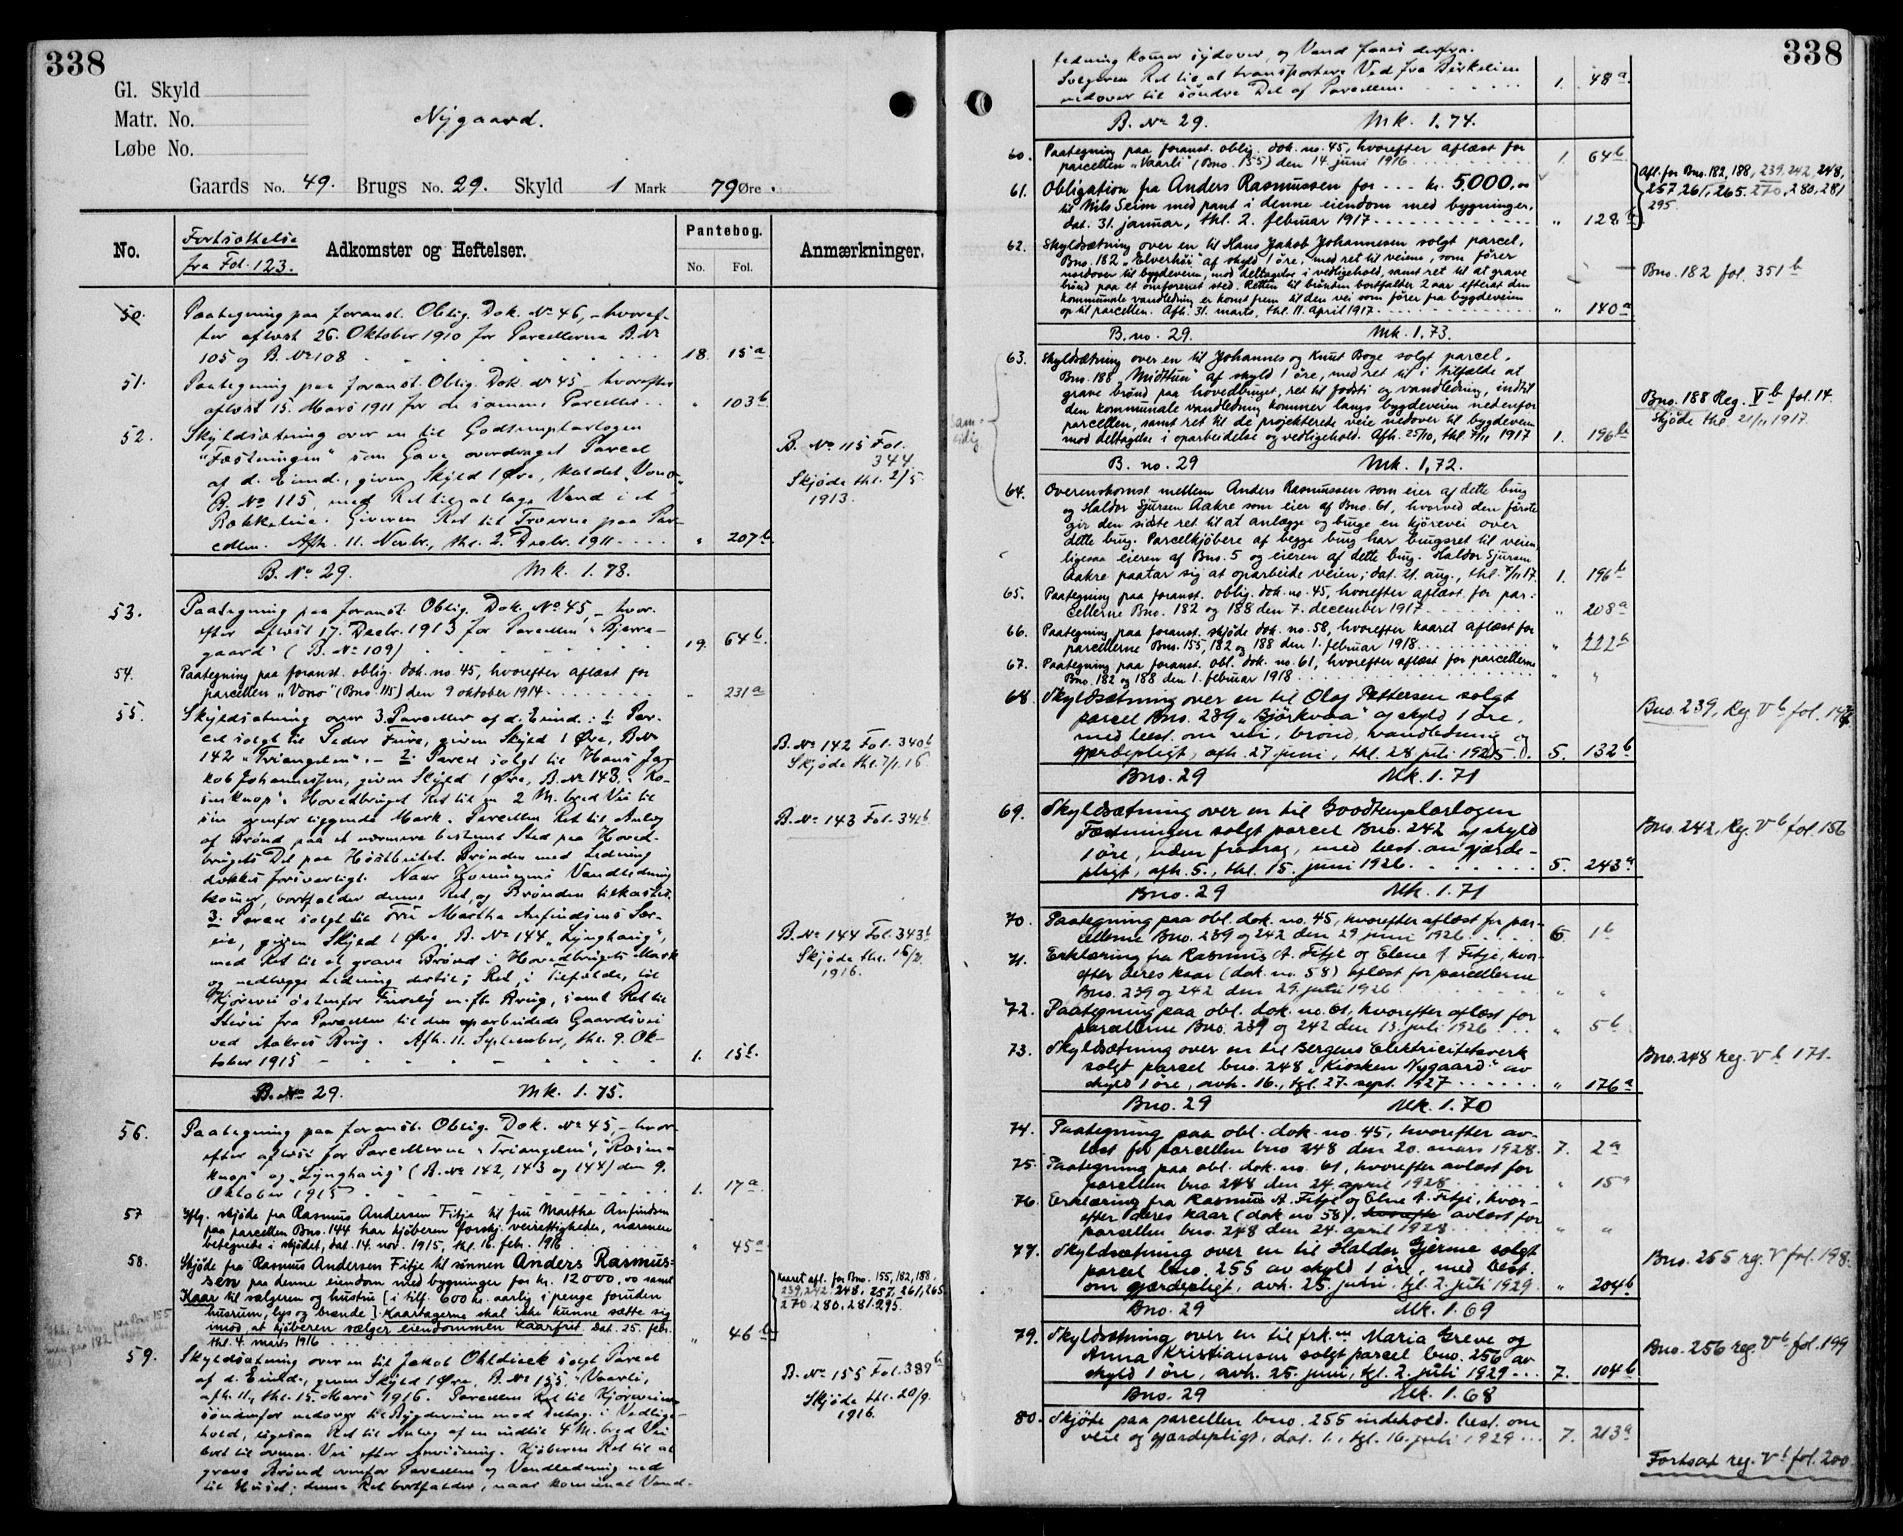 338
Gl. Skyld
Matr. No.
Løbe No.
Nygaard.
Gaards No. 49. Brugs No. 29. Skyld 1 Mark 79 Øre.
No.
Fortsættelse
fra Fol. 123.
Adkomster og Heftelser.
Pantebog.
No. Fol.
Anmærkninger.
50. Paategning paa foranst. Oblig. Dok. No 46, hvoref-
ter aflæst 26. Oktober 1910 for Parcellerne B. No
105 og B. No 108 18. 15a
51. Paategning paa foranst. Oblig. Dok. No 45, hvorefter
aflæst 15. Mars 1911 for de samme Parceller " 103b
52. Skyldsætning over en til Godtemplarlogen
"Fæstningen" som Gave overdraget Parcel
af d. Eiend., given Skyld 1 Øre, kaldet "Vono"
B. No 115, med Ret til at tage Vand i et
Bækkeleie. Giveren Ret til Træerne paa Par-
cellen. Afh. 11. Novbr., thl. 2. Decbr. 1911 " 207b
B. No 115 Fol.
344
Skjøde thl. 2/5
1913.
B. No 29. Mk. 1.78.
53. Paategning paa foranst. Oblig. Dok. No 45, hvor-
efter aflæst 17. Decbr. 1913 for Parcellen "Bjerre-
gaard" (B. No 109) 19. 64b
54. Paategning paa foranst. oblig. dok. no. 45, hvorefter aflæst for
parcellen "Vono" (Bno. 115) den 9 oktober 1914 " 231a
55. Skyldsætning over 3 Parceller af d. Eiend.: 1 Par-
cel solgt til Peder Fure, given Skyld 1 Øre, B. No
142 "Triangelen". - 2. Parcel solgt til Hans Ja-
kob Johannessen, given Skyld 1 Øre, B. No 143, "Ro-
sinknop". Hovedbruget Ret til en 2 M. bred Vei til
sin ovenfor liggende Mark. Parcellen Ret til Anlæg
af Brønd paa et nærmere bestemt Sted paa Hoved-
brugets Del paa Høstbeitet. Brønden med Ledning
dækkes forsvarligt. Naar Kommunens Vandledning
kommer, bortfalder denne Ret, og Brønden tilkastes.
3. Parcel solgt til Fru Martha Anfindsens Sær-
eie, given Skyld 1 Øre, B. No 144 "Lynghaug",
med Ret til at grave Brønd i Hovedbrugets Mark
og nedlægge Ledning dertil; Ret, i Tilfælde, til
Kjørevei østenfor Furely m. fl. Brug, samt Ret til
Stivei fra Parcellen til den oparbeidede Gaardsvei
ved Aakres Brug. Afh. 11. September, thl. 9. Ok-
tober 1915 1. 15b.
B. No 142 Fol. 340b
Skjøde thl. 7/1.16
B. No 143 Fol. 341b.
B. No 144 Fol. 343b
Skjøde thl. 16/2.
1916.
B. No 29. Mk. 1.75.
56. Paategning paa foranst. Oblig. Dok. No 45, hvor-
efter aflæst for Parcellerne "Triangelen", "Rosin-
knop" og "Lynghaug" (B. No 142, 143 og 144) den 9.
Oktober 1915 1. 17a
57 Iflg. skjøde fra Rasmus Andersen Fitje til fru Martha Anfindsen
paa parcellen Bno. 144 har kjøberen forskj. veirettigheder, nærmere
betegnede i skjødet, dat. 14. nov. 1915, thl. 16. febr. 1916 " 45a
58. Skjøde fra Rasmus Andersen Fitje til sønnen Anders Rasmus-
sen paa denne eiendom med bygninger for kr. 12000,00 samt
Kaar til sælgeren og hustru [i tilf. 600 kr. aarlig i penge foruden
husrum, lys og brænde]. Kaartagerne skal ikke kunne sætte sig
imod at kjøberen sælger eiendommen kaarfrit. Dat. 25. febr.
thl. 4. marts 1916 " 46b
Kaaret afl. for Bno. 155, 182, 188,
239, 242. 248, 257, 261, 265
270. 280. 281. 295.
59. Skyldsætning over en til Jakob Ohldieck solgt Parcel
af d. Eiend., given Skyld 1 Øre, B. No 155, "Vaarli",
afh. 11, thl. 15. Mars 1916. Parcellen Ret til Kjøreveien
søndenfor nedover til Bygdeveien mod Deltag. i Vedlige-
hold, ligesaa Ret til Anlæg af en indtil 4 M. bred Vei
bort til øvre Vei efter Anvisning. Kjøberen Ret til at
grave Brønd ovenfor Parcellen og Vandledning ned
til Huset; denne Ret bortfalder, naar kommunal Vand-
B. No 155 Fol. 389b
Skjøde thl. 20/9.
1916.
338
ledning kommer sydover, og Vand faaes derfra.
Sælgeren Ret til at transportere Ved fra Birkelien
nedover til søndre Del af Parcellen. 1. 48a.
B. No 29. Mk. 1.74.
60. Paategning paa foranst. oblig. dok. no. 45, hvorefter aflæst for
parcellen "Vaarli" (Bno. 155) den 14. juni 1916 1. 64b
61. Obligation fra Anders Rasmussen for kr. 5000,00
til Nils Seim med pant i denne eiendom med bygninger,
dat. 31. januar, thl. 2. februar 1917 " 128b
Afl. for Bno. 182, 188, 239, 242, 248,
257, 261, 265. 270, 280, 281
295.
62. Skyldsætning over en til Hans Jakob Johannesen solgt parcel,
Bno. 182 "Elverhøi" af skyld 1 øre, med ret til veiene, som fører
nordover til bygdeveien, mod deltagelse i vedligehold, samt ret til at grave
brønd paa et omforenet sted. Retten til brønden bortfalder 2 aar efterat den
kommunale vandledning er komt frem til den vei som fører fra bygdeveien
op til parcellen. Afh. 31. marts, thl. 11. april 1917 " 140a
Bno. 182 fol. 351b
B. no. 29. Mk. 1,73.
Sam-
tidig
63. Skyldsætning over en til Johannes og Knut Boge solgt parcel,
Bno. 188 "Midttun" af skyld 1 øre, med ret til i tilfælde at
grave brønd paa hovedbruget, ret til fodsti og vandledning, indtil
den kommunale vandledning kommer langs bygdeveien nedenfor
parcellen, samt ret til de projekterede veie nedover til bygdeveien
mod deltagelse i oparbeidelse og vedligehold. Afh. 25/10, thl. 7/11 1917 1. 196b
Bno. 188 Reg. Vb fol. 14.
Skjøde thl. 21/11 1917.
B. no. 29 Mk. 1,72.
64. Overenskomst mellem Anders Rasmussen som eier af dette brug
og Haldor Sjursen Aakre som eier af Bno. 61, hvorved den første
gir den sidste ret til at anlægge og bruge en kjørevei over
dette brug. Parcelkjøbere af begge brug har brugsret til veien,
ligesaa eieren af Bno. 5 og eieren af dette brug. Haldor Sjursen
Aakre paatar sig at oparbeide veien; dat. 21. aug., thl. 7/11 1917. 1. 196b
65. Paategning paa foranst. oblig. dok. no. 45, hvorefter aflæst for par-
cellerne Bno. 182 og 188 den 7. december 1917 " 208a
66. Paategning paa foranst. skjøde dok. no. 58, hvorefter kaaret aflæst for
parcellerne Bno. 155, 182 og 188 den 1. februar 1918 " 222a
67. Paategning paa foranst. obl. dok. no. 61, hvorefter aflæst for parcellerne
Bno. 182 og 188 den 1. februar 1918 " "
68. Skyldsætning over en til Olaf Pettersen solgt
parcel Bno. 239 "Björkvaa" af skyld 1 øre,
med best. om vei, brønd, vandledning og
gjærdepligt, afh. 27. juni, thl. 28. juli 1925 5. 132b
Bno. 239, Reg Vb fol. 146
Bno. 29 Mk. 1.71
69. Skyldsætning over en til Goodtemplarlogen
Fæstningen solgt parcel Bno. 242 af skyld
1 øre, uden fradrag, med best. om gjærde-
pligt, afh. 5., thl. 15. juni 1926 5. 243a
Bno. 242, Reg. Vb fol. 156
Bno. 29 Mk. 1.71
70. Paategning paa obl. dok. no. 45, hvorefter aflæst for par-
cellerne Bno. 239 og 242 den 29 juni 1926 6. 1b
71. Erklæring fra Rasmus A. Fitje og Elene A. Fitje, hvor-
efter deres kaar (dok. no. 58) aflæst for parcellerne
Bno. 239 og 242 den 29. juli 1926 " "
72. Paategning paa obl. dok. no. 61, hvorefter aflæst for
parcellerne Bno. 239 og 242 den 13. juli 1926 " 5b
73. Skyldsætning over en til Bergens Elektricitetsverk
solgt parcel bno. 248 "Kiosken Nygaard" av
skyld 1 øre, avh. 16., tgl. 27. sept. 1927 " 176a
Bno. 248 reg. Vb 171.
Bno. 29 Mk. 1.70
74. Paategning paa obl. dok. no. 45, hvorefter av-
læst for parcellen bno 248 den 20. mars 1928. 7. 2a
75. Paategning paa obl. dok. no. 61, hvorefter avlæst for
parcellen bno 248 den 24. april 1928 " 15a
76. Erklæring fra Rasmus A. Fitje og Elne A. Fitje, hvor-
efter deres kaar (dok no 58) avlæst for
parcellen bno. 248 den 24. april 1928 " "
77. Skyldsætning over en til Haldor Gjerme solgt
parcel bno. 255 av skyld 1 øre, med best.
om gjærdepligt, avh. 25. juni, tgl. 2. juli 1929 " 204b
Bno. 255 reg. V fol. 198.
Bno. 29 Mk. 1.69
79. Skyldsætning over en til frkn. Maria Greve og
Anna Kristiansen solgt parcel bno. 256 av
skyld 1 øre, avh. 25. juni, tgl. 2. juli 1929 7. 104b
Bno. 256 reg. Vb fol. 199
Bno. 29 Mk. 1.68
80. Skjøte paa parcellen bno. 255 indehold. best. om
veie og gjærdepligt, dat. 1., tgl. 16. juli 1929 7. 213a
Fortsat reg. Vb fol. 200